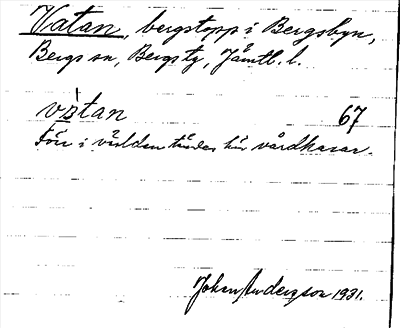 Vatan, bergstopp i Bergsbyn,
Bergs sn, Bergs tg, Jämtl. l.
vàtan 67
Förr i världen tändes här vårdkasar.
Johan Andersson 1931.